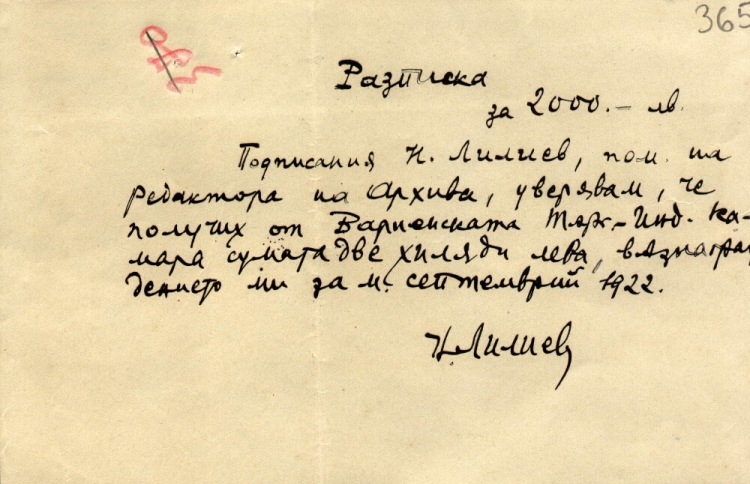 365
Разписка
за 2000.- лв.
Подписания Н. Лилиев, пом. на
редактора на Архива, уверявам, че
получих от Варненската Търг.-Инд. Ка-
мара сумата две хиляди лева, възнаграж
дението ми за м. септемврий 1922.
Н. Лилиев